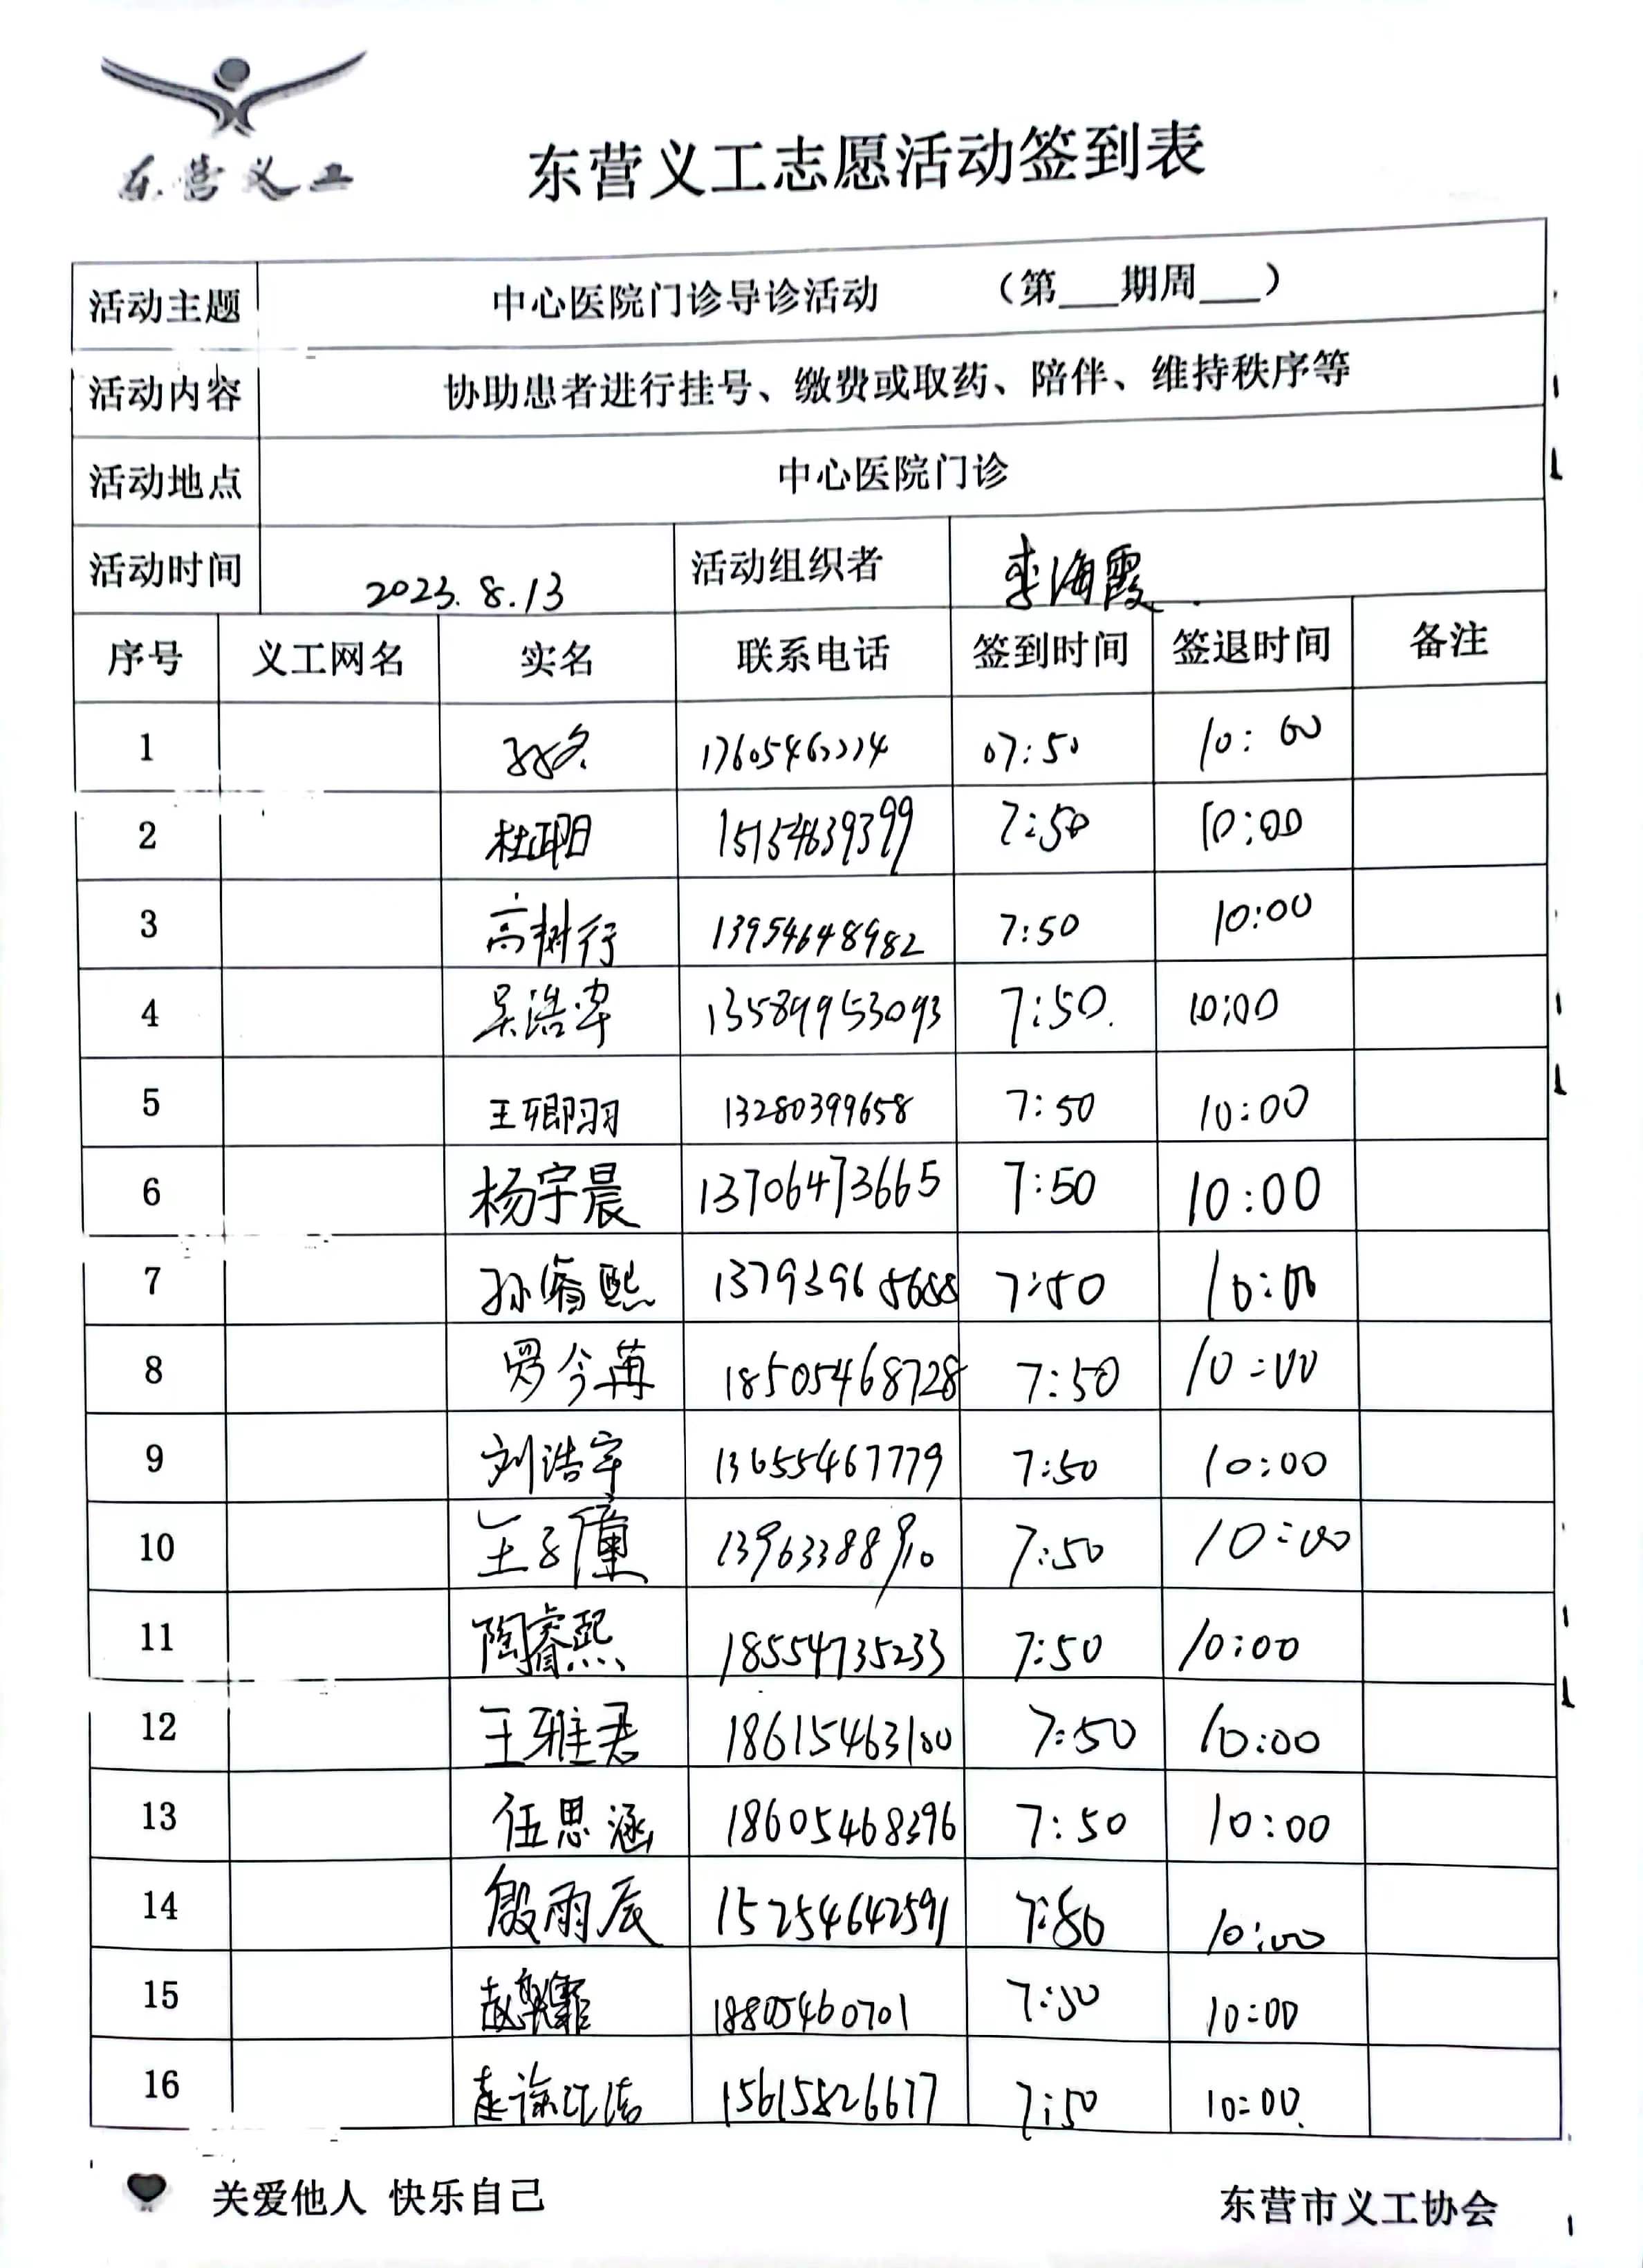 东营义工
东营义工志愿活动签到表
活动主题 中心医院门诊导诊活动 (第___期周___)
活动内容 协助患者进行挂号、缴费或取药、陪伴、维持秩序等
活动地点 中心医院门诊
活动时间 2023.8.13 活动组织者 李海霞
序号 义工网名 实名 联系电话 签到时间 签退时间 备注
1 07:50 10:00
2 15154639399 7:50 10:00
3 高树行 13954648982 7:50 10:00
4 吴浩宇 13589953093 7:50. 10:00
5 王卿羽 13280399658 7:50 10:00
6 杨宇晨 13706473665 7:50 10:00
7 13793965688 7:50 10:00
8 罗今苒 18505468728 7:50 10:00
9 刘浩宇 13655467779 7:50 10:00
10 13963388910 7:50 10:00
11 陶睿熙 18554735233 7:50 10:00
12 王雅君 18615463100 7:50 10:00
13 伍思涵 18605468396 7:50 10:00
14 殷雨辰 15254642591 7:50 10:00
15 18805460701 7:50 10:00
16 15615826677 7:50 10:00.
关爱他人 快乐自己 东营市义工协会